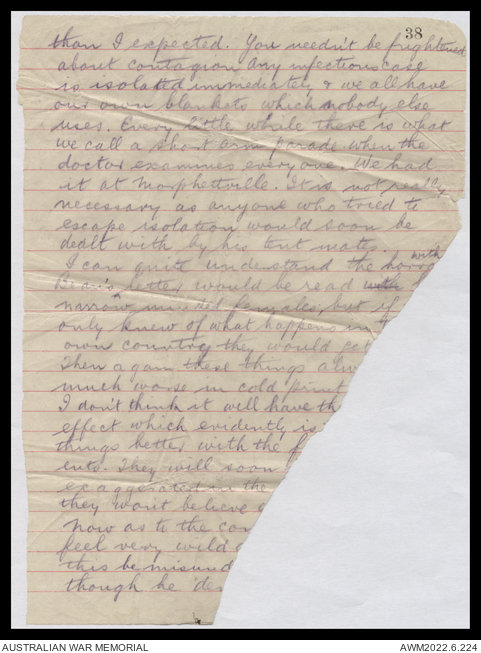 38
than I expected. You needn't be frightened
about contagion any infectious case
is isolated immediately & we all have
our own blankets which nobody else
uses. Every little while there is what
we call a short arm parade when the
doctor examines every one. We had
it at Morphettville. It is not really
necessary as anyone who tried to
escape isolation would soon be
dealt with by his tent mates.
I can quite understand the horro with
Bean's letter would be read with
narrow minded females, but if
only knew of what happens in t
own country they would get
Then again these things alw
much worse in cold print
I don't think it will have th
effect which evidently is
things better with the f
ents. They will soon
exaggerated in the
they wont believe a
Now as to the con
feel very wild a
this be misund
though he de
AUSTRALIAN WAR MEMORIAL
AWM2022.6.224